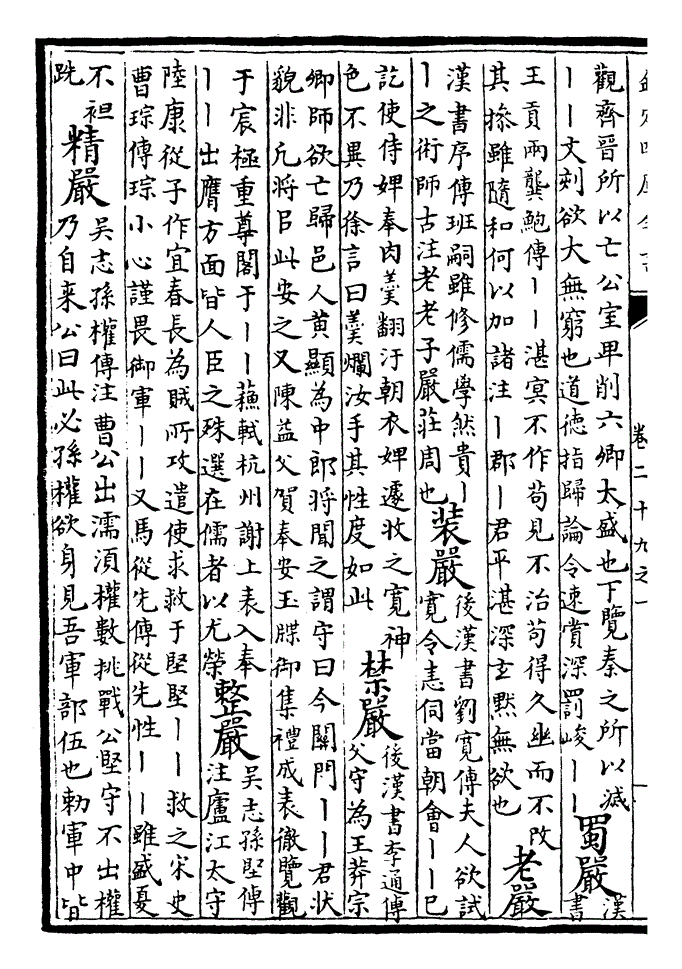 欽定四庫全書
卷二十九之一
觀齊晉所以亡公室卑削六卿太盛也下覽秦之所以滅
丨丨文刻欲大無窮也道德指歸論令速賞深罰峻丨丨
蜀嚴
漢
書
王貢兩龔鮑傳丨丨湛冥不作苟見不治苟得久幽而不改
其操雖隨和何以加諸注丨郡丨君平湛深玄黙無欲也
老嚴
漢書序傳班嗣雖修儒學然貴丨
丨之術師古注老老子嚴莊周也
裝嚴
後漢書劉寛傳夫人欲試
寛令恚伺當朝會丨丨已
訖使侍婢奉肉羹翻汙朝衣婢遽收之寛神
色不異乃徐言曰羹爛汝手其性度如此
禁嚴
後漢書李通傳
父守為王莽宗
卿師欲亡歸邑人黄顯為中郎將聞之謂守曰今關門丨丨君狀
貌非凡將㠯此安之又陳益父賀奉安玉牒御集禮成表徹覽觀
于宸極重尊閣于丨丨蘇軾杭州謝上表入奉
丨丨出膺方面皆人臣之殊選在儒者以尤榮
整嚴
吳志孫堅傳
注廬江太守
陸康從子作宜春長為賊所攻遣使求救于堅堅丨丨救之宋史
曹琮傳琮小心謹畏御軍丨丨又馬從先傳從先性丨丨雖盛夏
不袒
跣
精嚴
吳志孫權傳注曹公出濡須權數挑戰公堅守不出權
乃自来公曰此必孫權欲身見吾軍部伍也勅軍中皆